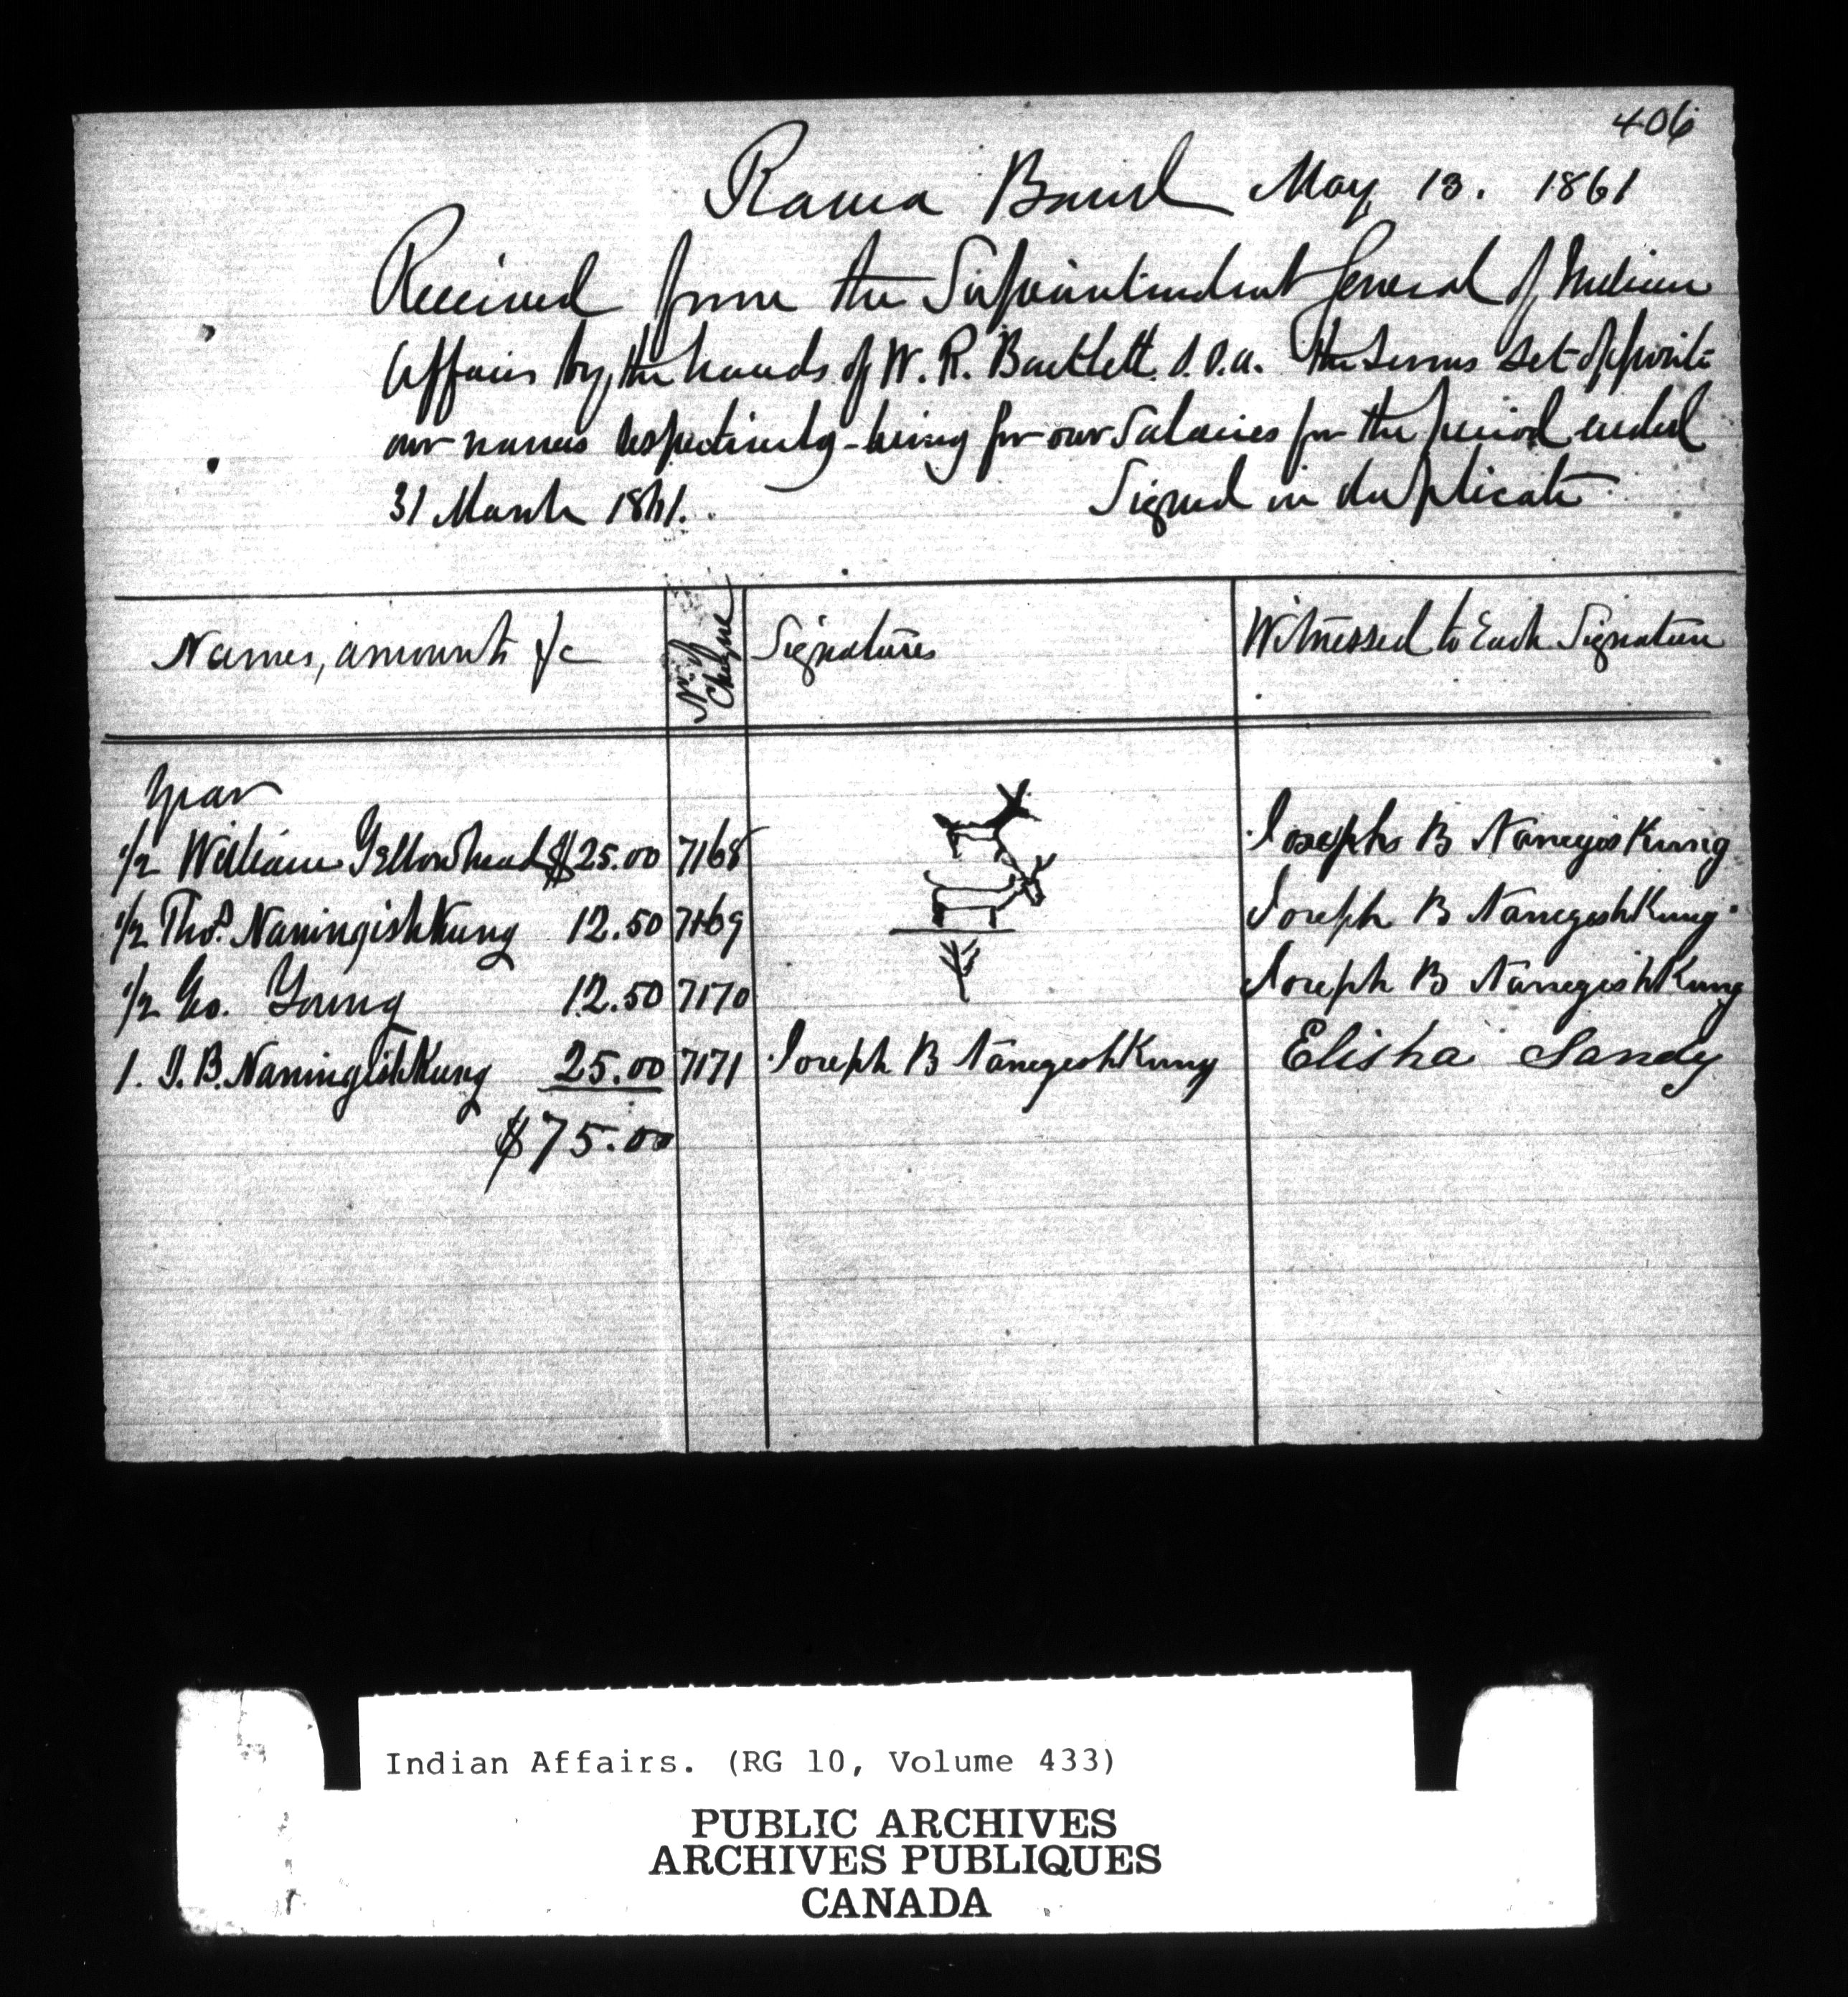 406
Rama Band May 13. 1861
Received from the Superintendent General of Indian
Affairs by the hands of W. R. Bartlett. S.I.A. the sums set opposite
our names respectively - being for our Salaries for the period ended
31 March 1861. Signed in duplicate
Names, amounts &c No. of Cheque Signatures Witnessed to Each Signature
Year
1/2 William Yellowhead $25.00 7168 Joseph B Nanegishkung
1/2 Thos. Naningishkung 12.50 7169 Joseph B Nanegishkung
1/2 Geo. Young 12.50 7170 Joseph B Nanegishkung
1. J. B. Naningishkung 25.00 7171 Joseph B Nanegishkung Elisha Sandy
$75.00
Indian Affairs. (RG 10, Volume 433)
PUBLIC ARCHIVES
ARCHIVES PUBLIQUES
CANADA